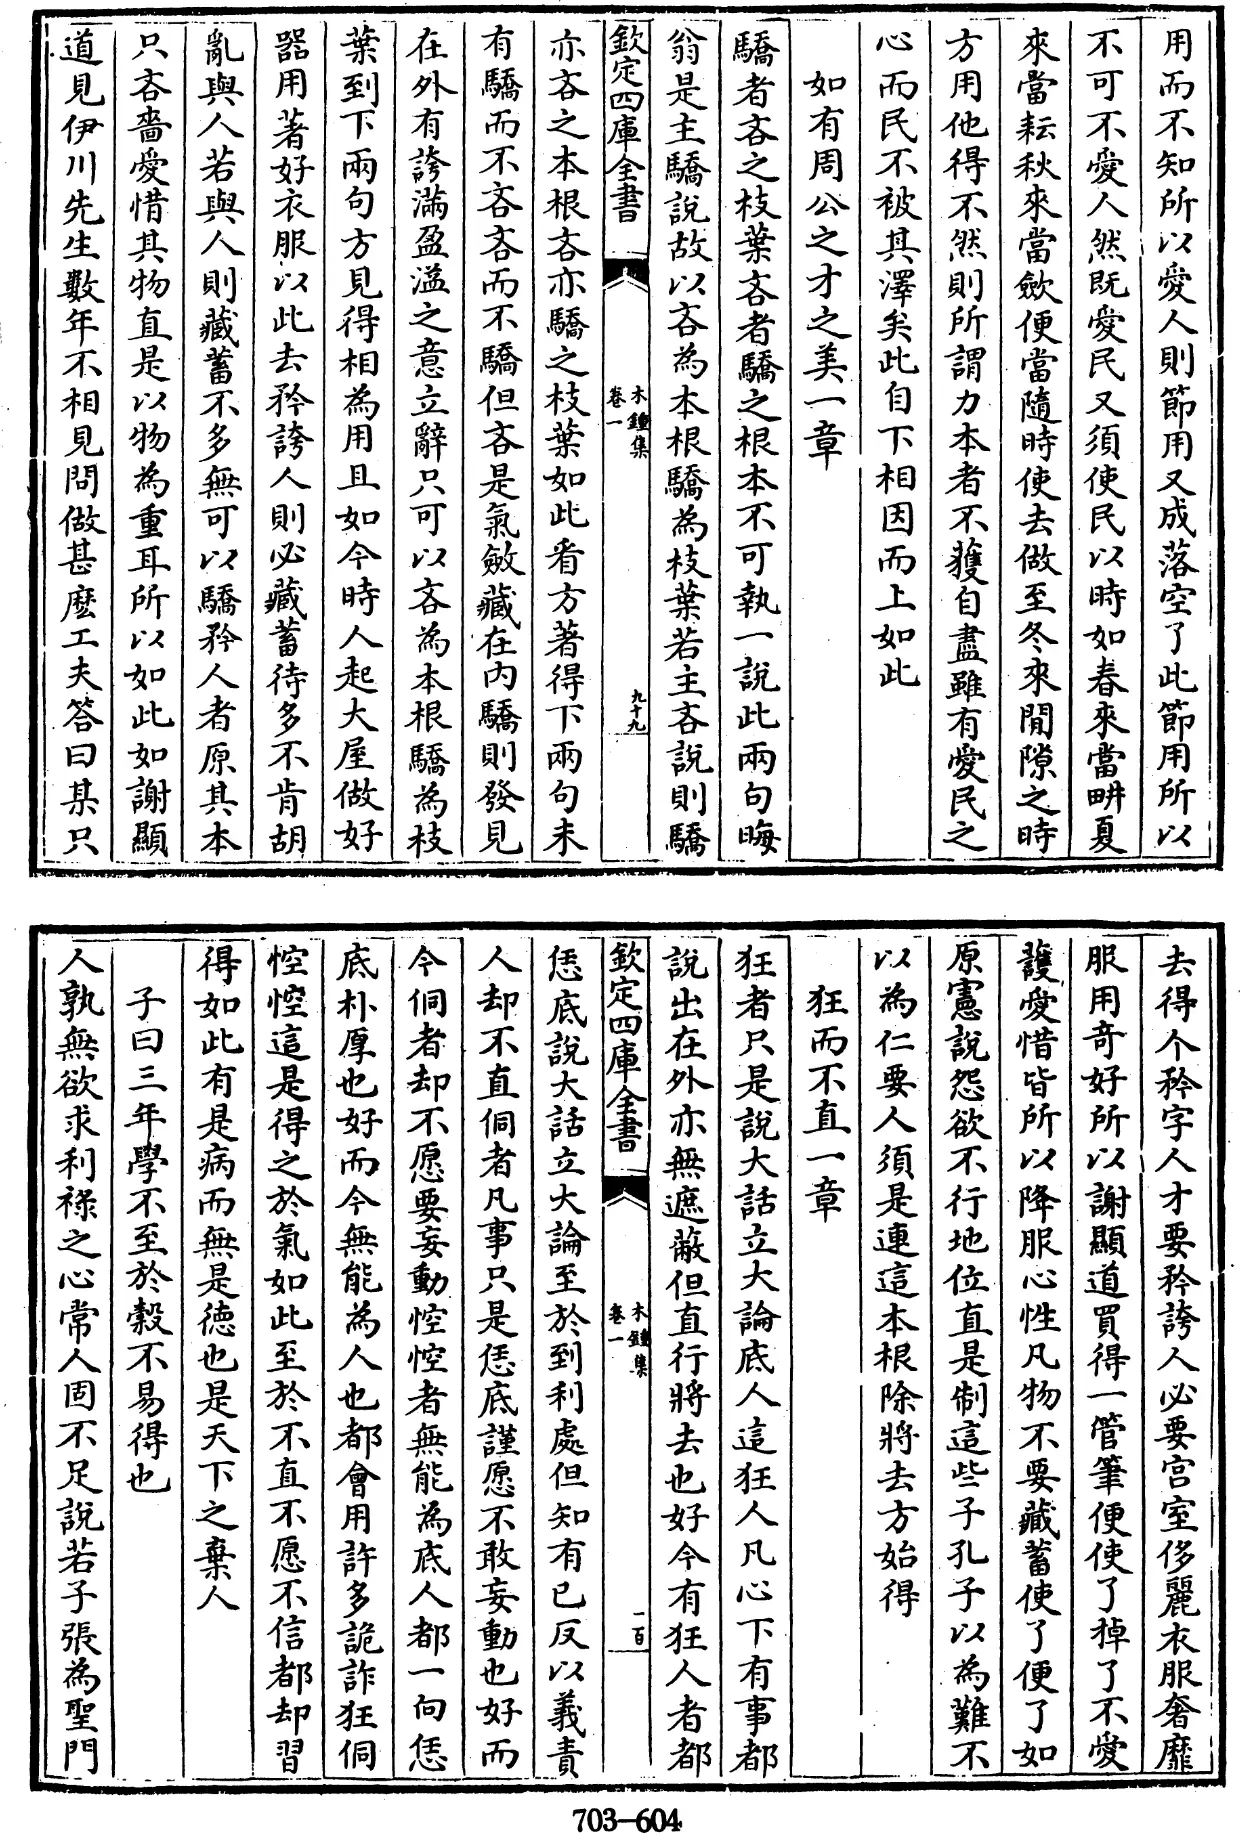 用而不知所以愛人則節用又成落空了此節用所以
不可不愛人然既愛民又須使民以時如春來當畊夏
來當耘秋來當斂便當隨時使去做至冬來閒隙之時
方用他得不然則所謂力本者不獲自盡雖有愛民之
心而民不被其澤矣此自下相因而上如此
如有周公之才之美一章
驕者吝之枝葉吝者驕之根本不可執一說此兩句晦
翁是主驕說故以吝為本根驕為枝葉若主吝說則驕
欽定四庫全書
木鍾集
卷一
九十九
亦吝之本根吝亦驕之枝葉如此看方著得下兩句未
有驕而不吝吝而不驕但吝是氣斂藏在内驕則發見
在外有誇滿盈溢之意立辭只可以吝為本根驕為枝
葉到下兩句方見得相為用且如今時人起大屋做好
器用著好衣服以此去矜誇人則必藏蓄待多不肯胡
亂與人若與人則藏蓄不多無可以驕矜人者原其本
只吝嗇愛惜其物直是以物為重耳所以如此如謝顯
道見伊川先生數年不相見問做甚麽工夫答曰某只
去得个矜字人才要矜誇人必要宫室侈麗衣服奢靡
服用奇好所以謝顯道買得一管筆便使了掉了不愛
護愛惜皆所以降服心性凡物不要藏蓄使了便了如
原憲說怨欲不行地位直是制這些子孔子以為難不
以為仁要人須是連這本根除將去方始得
狂而不直一章
狂者只是說大話立大論底人這狂人凡心下有事都
說出在外亦無遮蔽但直行將去也好今有狂人者都
欽定四庫全書
木鍾集
卷一
一百
恁底說大話立大論至於到利處但知有已反以義責
人却不直侗者凡事只是恁底謹愿不敢妄動也好而
今侗者却不愿要妄動悾悾者無能為底人都一向恁
底朴厚也好而今無能為人也都會用許多詭詐狂侗
悾悾這是得之於氣如此至於不直不愿不信都却習
得如此有是病而無是德也是天下之棄人
子曰三年學不至於穀不易得也
人孰無欲求利祿之心常人固不足說若子張為聖門
703-604